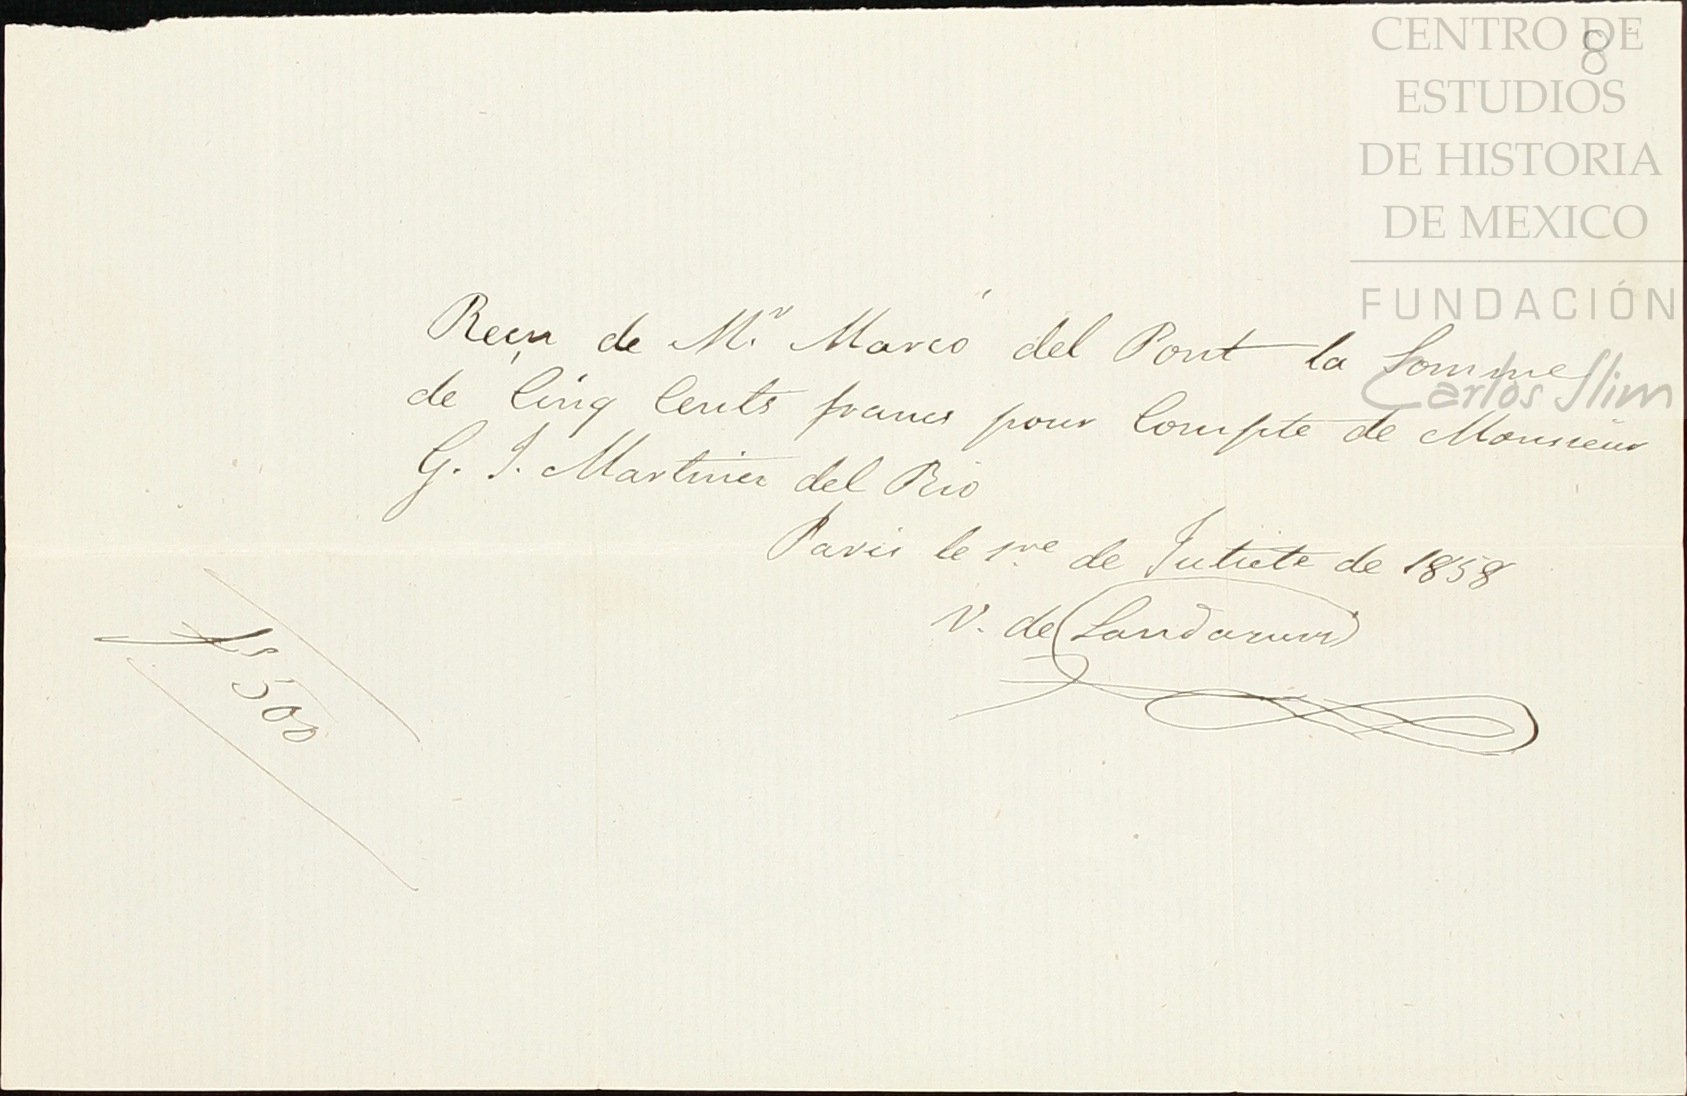 8
CENTRO DE
ESTUDIOS
DE HISTORIA
DE MEXICO
FUNDACIÓN
Carlos Slim
Reçu de Mr. Marcó del Pont la Somme
de Cinq Cents francs pour Compte de Monsieur
G. J. Martinez del Rio
Paris le 1re de Juliete de 1858
V. de Landazuri
fs 500